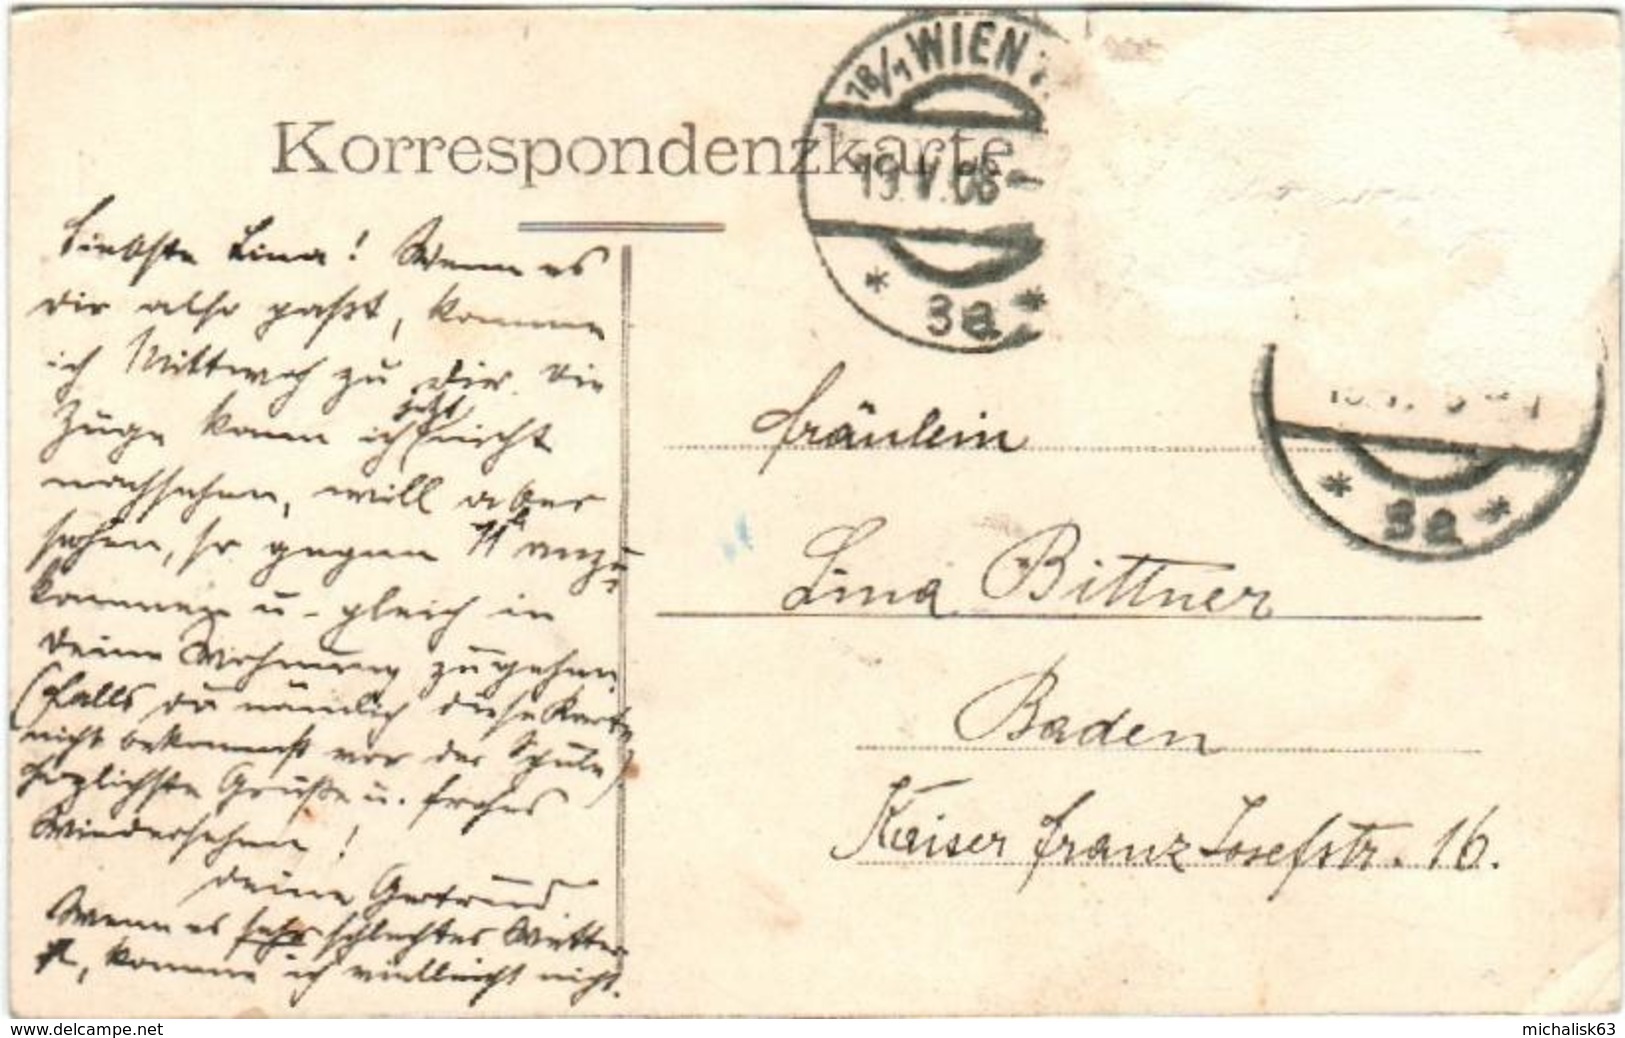 18/1 WIEN
Korrespondenzkarte
19.V.08
* 3a *
Liebste Lina! Wenn es
dir also paßt, komme
ich Mittwoch zu dir. Die
Züge kann ich jetzt nicht
nachsehen, will aber
sehen, so gegen 11h anzu=
kommen u. gleich in
deine Wohnung zu gehen
(Falls du nämlich diese Karte
nicht bekommst vor der Schule).
Herzlichste Grüße u. frohes
Wiedersehen!
deine Gertrud.
Wenn es sehr schlechtes Wetter
ist, komme ich vielleicht nicht.
* 3a *
Fräulein
Lina Bittner
Baden
Kaiser Franz Josefstr. 16.
www.delcampe.net
michalisk63